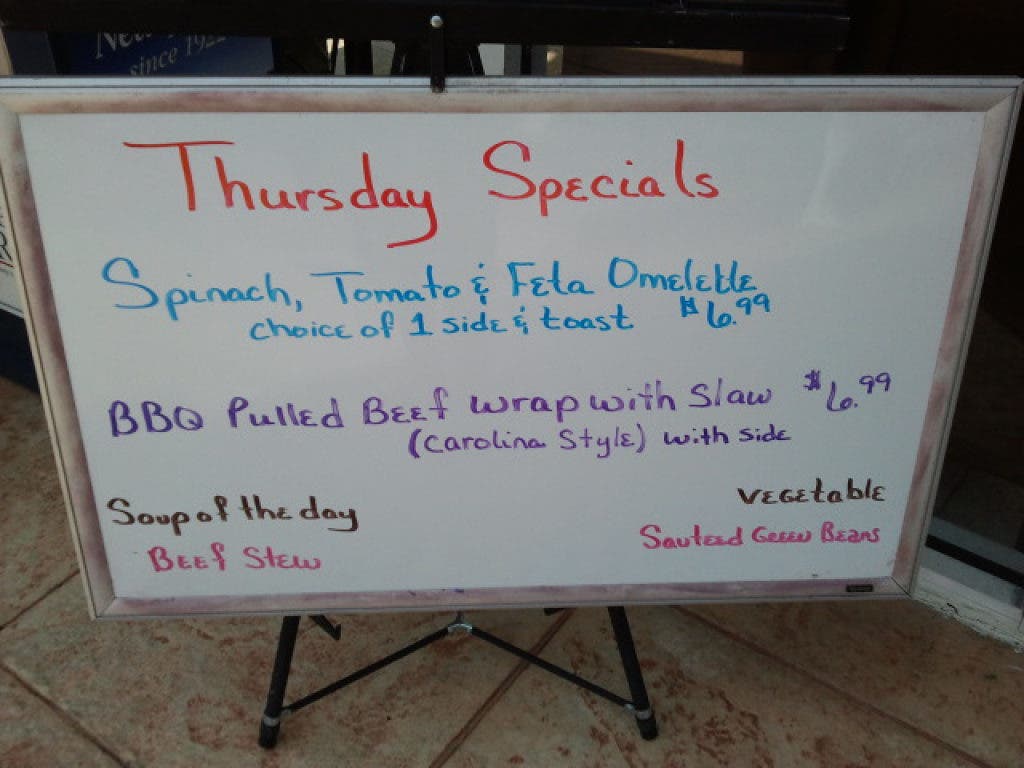 since 1922
Thursday Specials
Spinach, Tomato & Feta Omelette
choice of 1 side & toast $6.99
BBQ Pulled Beef wrap with Slaw $6.99
(Carolina Style) with side
Soup of the day
Beef Stew
Vegetable
Sauteed Green Beans